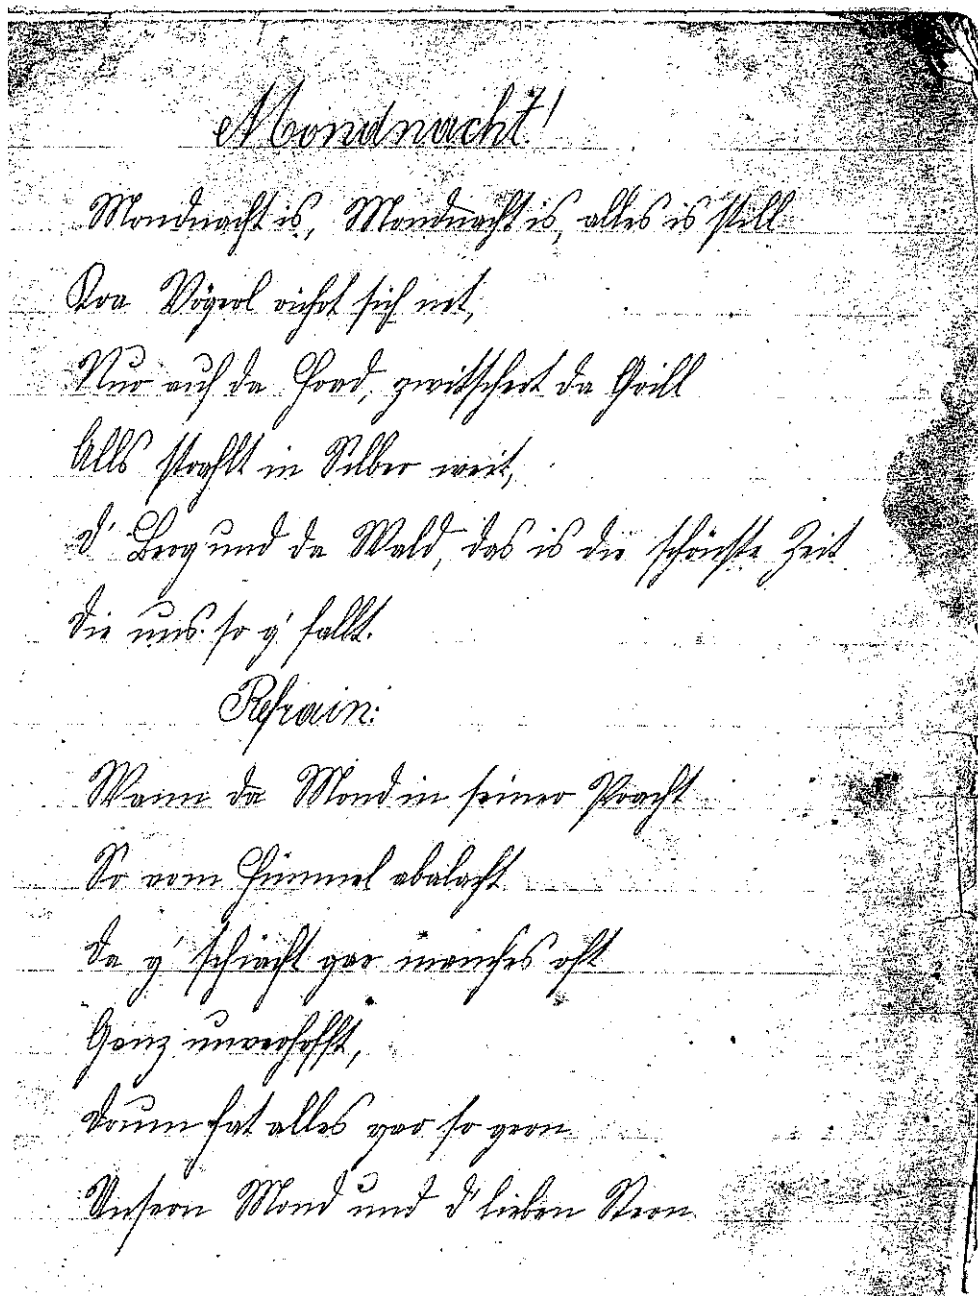 Mondnacht!
Mondnacht is, Mondnacht is, alles is still
Koa Vögerl rührt sich net,
Nur auf da Höad, zwitschert da Grill
Alls strahlt in Silber weit,
d' Berg und da Wald, das is die schönste Zeit
die uns so g' fallt.
Refrain:
Wann da Mond in seiner Pracht
So vom Himmel abalacht
da g' schiacht gar manches oft
Ganz unverhofft,
drum hat alles gar so gern
Unsern Mond und d' lieben Stern.